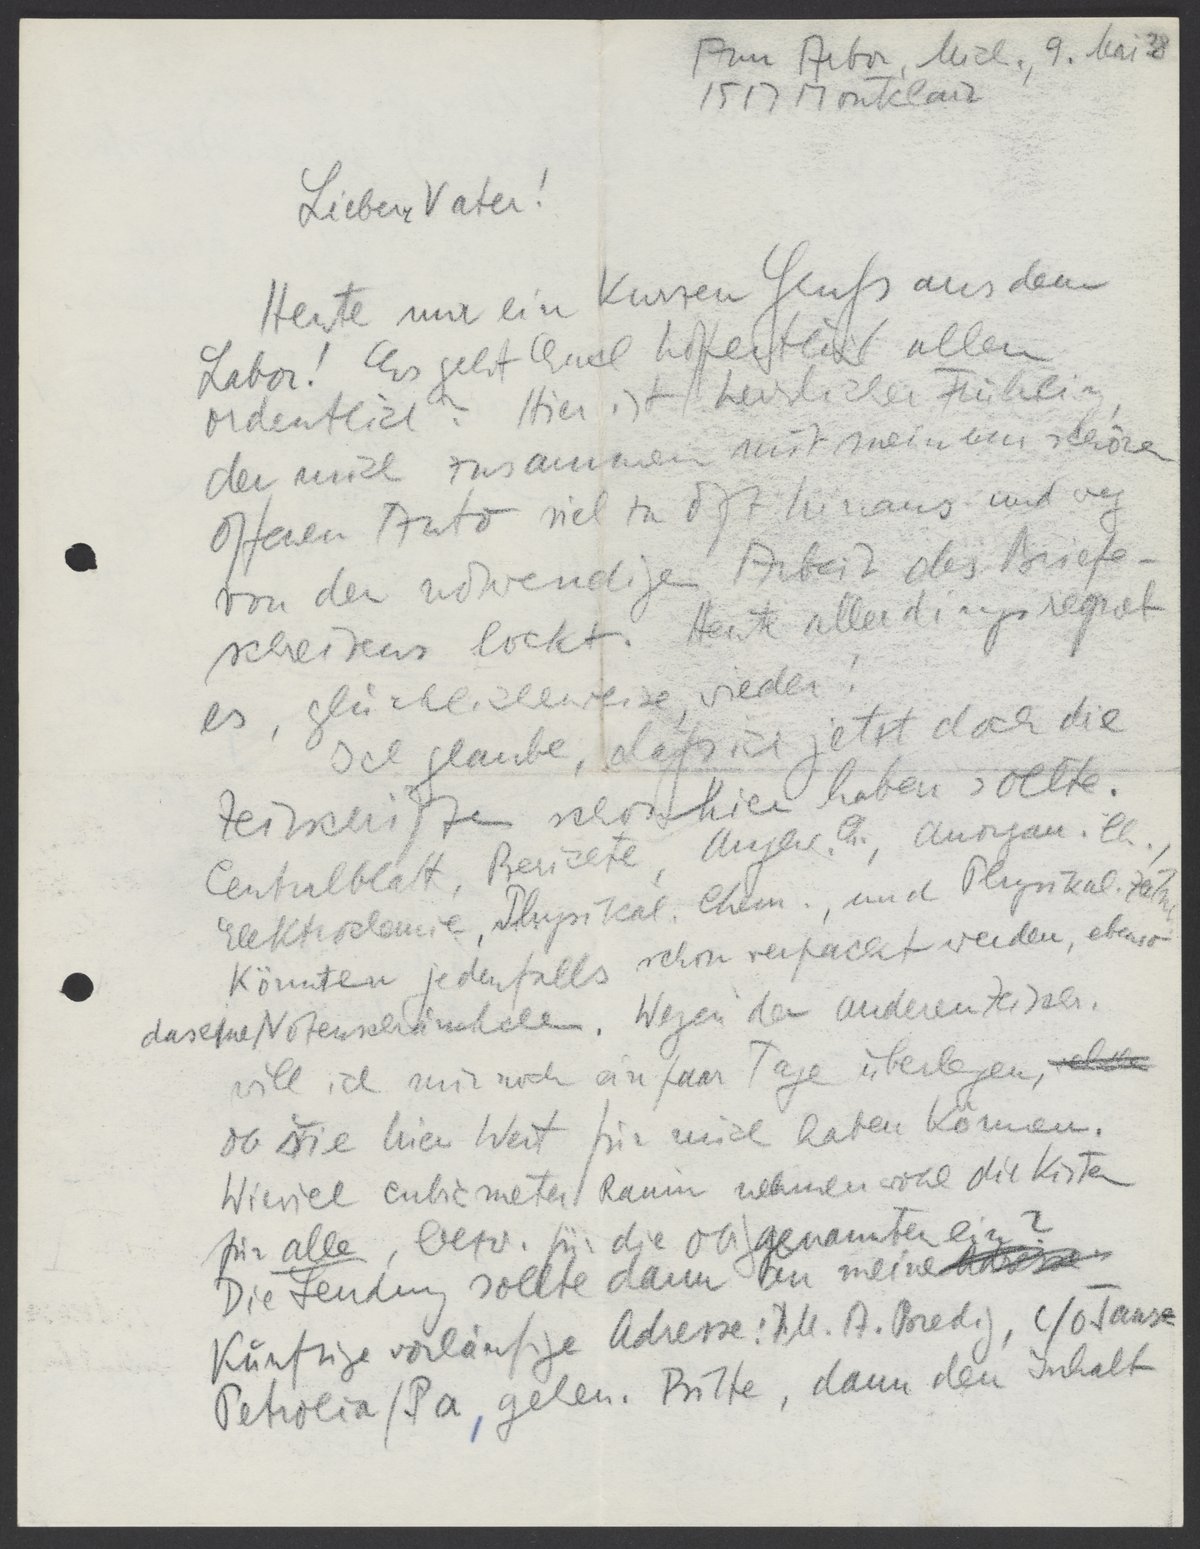 Ann Arbor, Mich., 9. Mai 38
1517 Montclair
Lieber Vater!
Heute nur ein kurzen Gruß aus dem
Labor! Es geht Euch hoffentlich allen
ordentlich? Hier ist herrlicher Frühling,
der mich zusammen mit meinem schönen
offenen Auto viel zu oft hinaus und weg
von der notwendigen Arbeit des Briefe-
schreibens lockt. Heute allerdings regnet
es, glücklicherweise, wieder!
Ich glaube, daß ich jetzt doch die
Zeitschriften schon hier haben sollte.
Centralblatt, Berichte, Angew. Ch., Anorgan. Ch.,
Elektrochemie, Physikal. Chem., und Physikal. Zeitschr.
könnten jedenfalls schon verpackt werden, ebenso
das eine Notenschränkchen. Wegen der anderen Zeitschr.
will ich mir noch ein paar Tage überlegen,
ob sie hier Wert für mich haben können.
Wieviel cubicmeter Raum nehmen wohl die Kisten
für alle, bezw. für die obgenannten ein?
Die Sendung sollte dann an meine
künftige vorläufige Adresse: M. A. Bredig, c/o
Petrolia/Pa, gehen. Bitte, dann den Inhalt